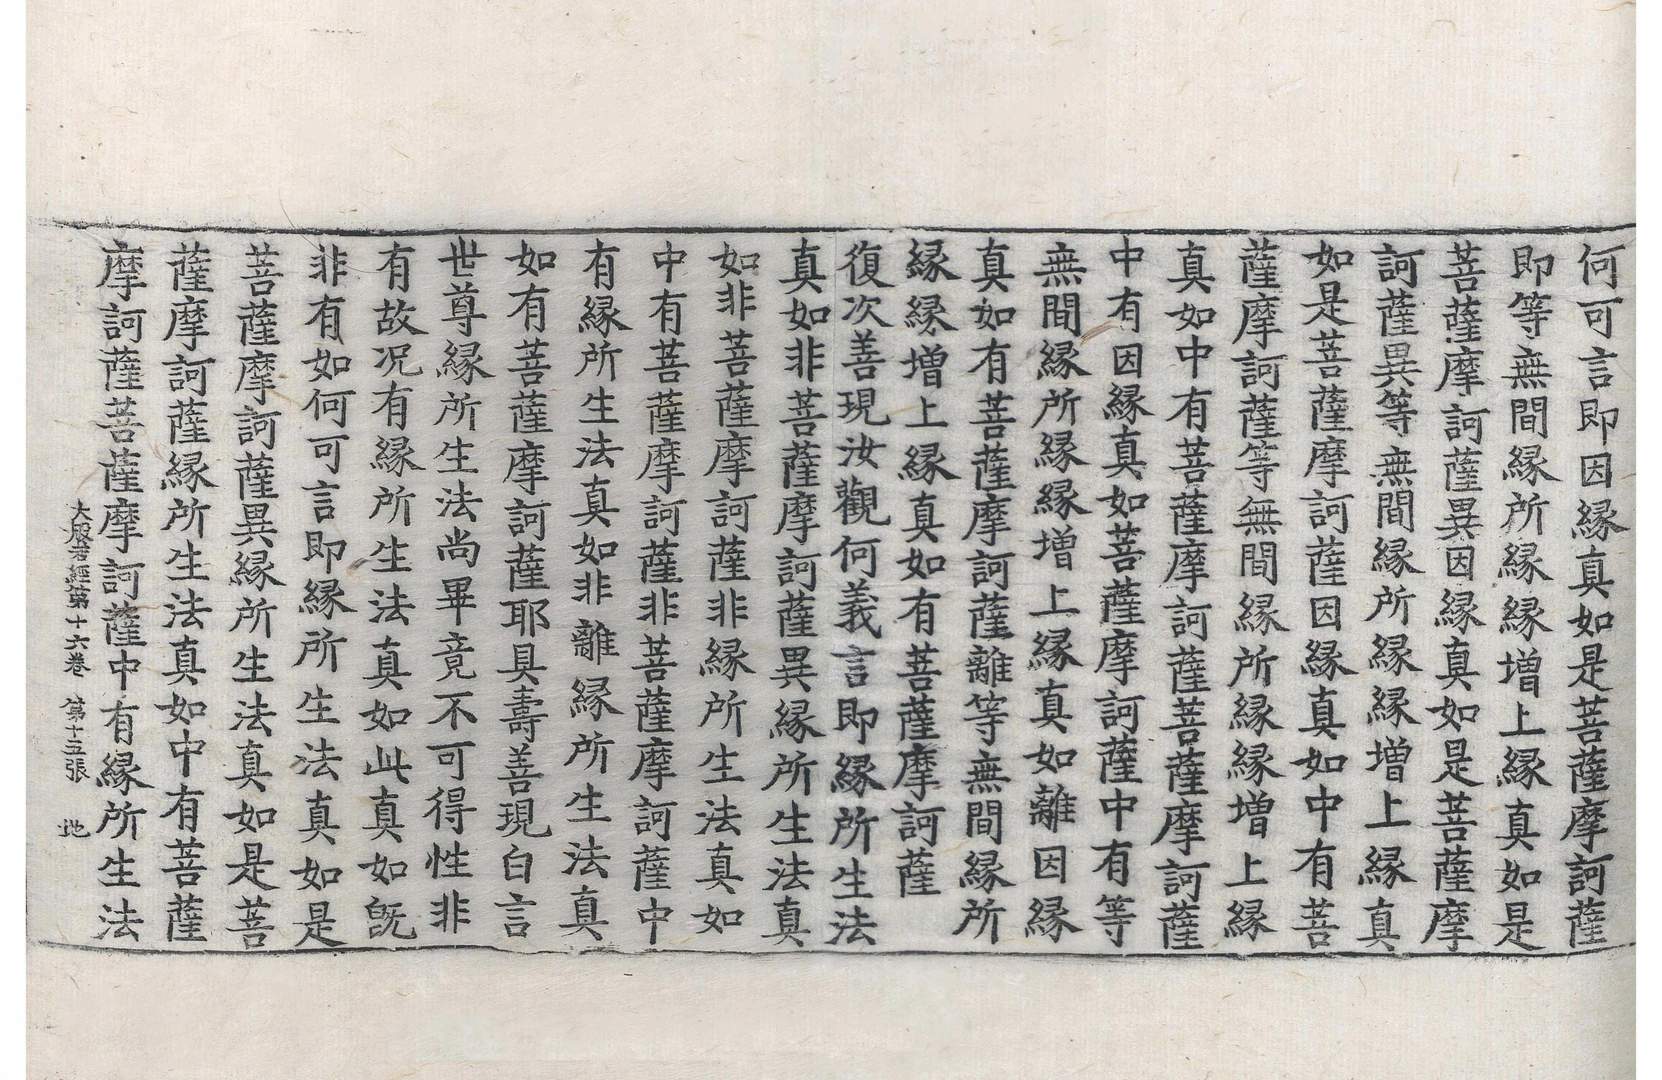 何可言即因縁真如是菩薩摩訶薩
即等無間縁所縁縁増上縁真如是
菩薩摩訶薩異因縁真如是菩薩摩
訶薩異等無間縁所縁縁増上縁真
如是菩薩摩訶薩因縁真如中有菩
薩摩訶薩等無間縁所縁縁増上縁
真如中有菩薩摩訶薩菩薩摩訶薩
中有因縁真如菩薩摩訶薩中有等
無間縁所縁縁増上縁真如離因縁
真如有菩薩摩訶薩離等無間縁所
縁縁増上縁真如有菩薩摩訶薩
復次善現汝觀何義言即縁所生法
真如非菩薩摩訶薩異縁所生法真
如非菩薩摩訶薩非縁所生法真如
中有菩薩摩訶薩非菩薩摩訶薩中
有縁所生法真如非離縁所生法真
如有菩薩摩訶薩耶具壽善現白言
世尊縁所生法尚畢竟不可得性非
有故況有縁所生法真如此真如旣
非有如何可言即縁所生法真如是
菩薩摩訶薩異縁所生法真如是菩
薩摩訶薩縁所生法真如中有菩薩
摩訶薩菩薩摩訶薩中有縁所生法
大般若經第十六卷 第十五張 地